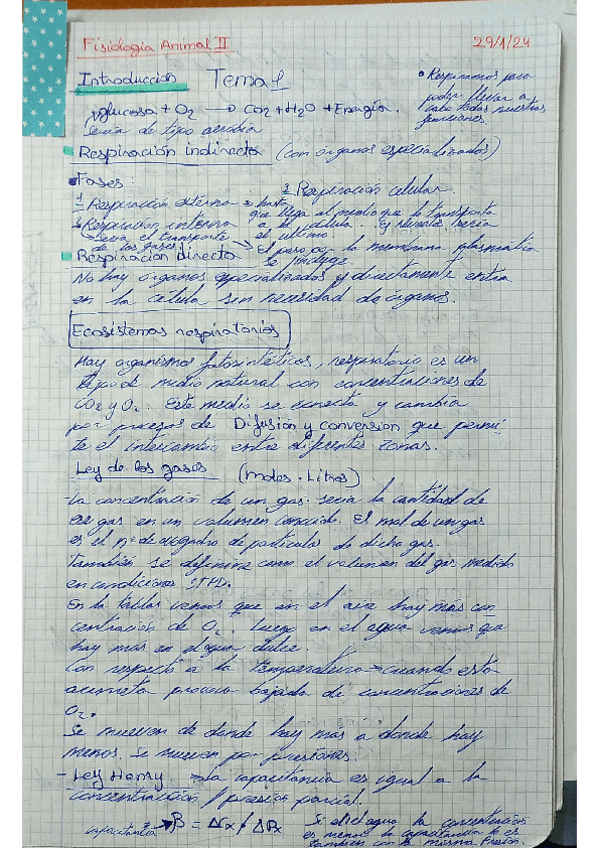 Fisiología Animal II
29/1/24
Introducción Tema 1
• Respiramos para
poder llevar a
cabo todas nuestras
funciones.
glucosa + O2 → CO2 + H2O + Energía.
sería de tipo aerobia
Respiración indirecta (con órganos especializados)
Fases:
1 Respiración externa → hasta
que llega al medio que lo transporta
a la célula.
2 Respiración interna
sería el transporte
de los gases
3 Respiración celular.
sería
el último.
→ El paso por la membrana plasmática
se incluye.
Respiración directa
No hay órganos especializados y directamente entra
en la célula sin necesidad de órganos.
Ecosistemas respiratorios
Hay organismos fotosintéticos, respiratorio es un
tipo de medio natural con concentraciones de
CO2 y O2. Este medio se conecta y cambia
por procesos de Difusión y conversión que permi-
te el intercambio entre diferentes zonas.
Ley de los gases (moles · Litros)
- La concentración de un gas sería la cantidad de
ese gas en un volumen conocido. El mol de un gas
es el nº de avogadro de partículas de dicho gas.
También se definiría como el volumen del gas medido
en condiciones STPD.
En la tablas vemos que en el aire hay más con
centración de O2. Luego en el agua vemos que
hay más en el agua dulce.
Con respecto a la temperatura → cuando esta
aumenta provoca bajada de concentraciones de
O2.
Se mueven de donde hay más a donde hay
menos. Se mueven por presiones.
- Ley Henry → la capacitancia es igual a la
concentración / presión parcial.
capacitancia → β = ΔCx / ΔPx
Si el agua la concentración
es menor la capacitancia lo es
también con la misma Presión.